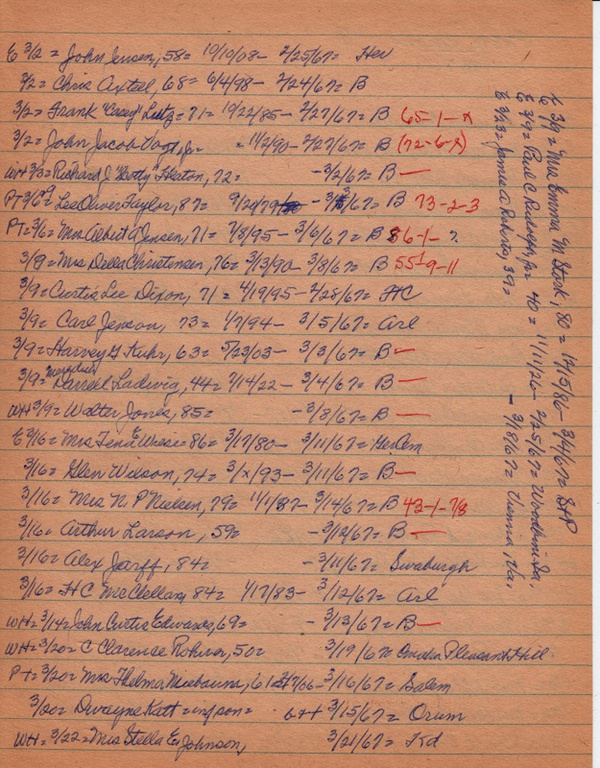 E 3/2 = John Jensen, 58 = 10/10/08 - 2/25/67 = Her
3/2 = Chris Axtel, 68 = 6/4/98 - 2/24/67 = B
3/2 = Frank "Casey" Lutz = 71 = 10/22/85 - 2/27/67 = B 65-1-x
3/2 = John Jacob Vogt, Jr = 11/2/90 - 2/27/67 = B (72-6-x)
WH 3/3 = Richard J. Heston, 72 = - 3/2/67 = B —
PT 3/6 = Lee Oliver Taylor, 87 = 9/20/79 - 3/3/67 = B 73-2-3
PT = 3/6 = Mrs Albert A Jensen, 71 = 7/8/95 - 3/6/67 = B 86-1- ?
3/9 = Mrs Della Christensen, 76 = 3/13/90 - 3/8/67 = B 55-9-11
3/9 = Curtis Lee Dixon, 71 = 4/19/95 - 2/28/67 = HC
3/9 = Carl Jenson, 73 = 1/7/94 - 3/5/67 = Arl
3/9 = Harvey G Kuhr, 63 = 5/23/03 - 3/3/67 = B —
3/9 = Darrell Ladwig, 44 = 7/14/22 - 3/4/67 = B —
WH 3/9 = Walter Jones, 85 = - 3/8/67 = B —
E 3/16 = Mrs Tena E Wiese = 86 = 3/17/80 - 3/11/67 =
3/16 = Glen Wilson, 74 = 3/x/93 - 3/11/67 = B —
3/16 = Mrs N. P Nielsen, 79 = 11/1/87 - 3/14/67 = B 43-1-7/8
3/16 = Arthur Larson, 59 = - 3/12/67 = B —
3/16 = Alex Jarff, 84 = - 3/11/67 = Swaburgh
3/16 = HC McClellan, 84 = 1/17/83 - 3/12/67 = Arl
WH = 3/14 = John Curtis Edwards, 69 = - 3/13/67 = B —
WH = 3/20 = C Clarence Rohwer, 50 = 3/19/67 = Omaha Pleasant Hill
PT = 3/20 = Mrs Thelma, 61 - 3/16/67 = Salem
3/20 = Dwayne Katt = inf son = 3/15/67 = Orum
WH = 3/22 = Mrs Stella E Johnson, 3/21/67 = Frd
E 3/9 = Mrs Emma M Stark, 80 = 12/15/86 - 3/4/67 =
E 3/9 = Paul C Rudolph, Jr 40 = 11/11/26 - 2/25/67 = Woodbine Ia.
E 3/23 = James A Roberts, 39 = - 3/18/67 = Vienna, Va.